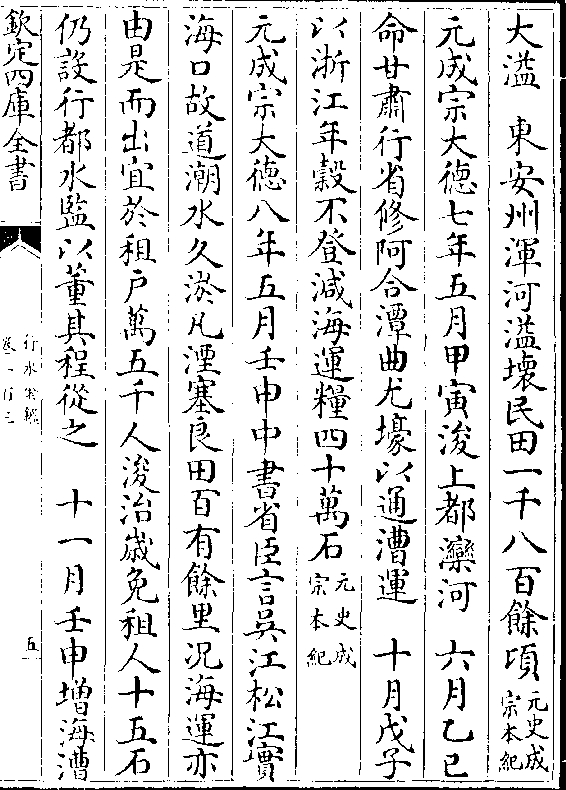 大溢　東安州渾河溢壞民田一千八百餘頃元史成宗本紀
元成宗大德七年五月甲寅浚上都灤河　六月乙巳
命甘肅行省修阿合潭曲尤壕以通漕運　十月戊子
以浙江年穀不登減海運糧四十萬石元史成宗本紀
元成宗大德八年五月壬申中書省臣言吳江松江實
海口故道潮水久淤凡湮塞良田百有餘里况海運亦
由是而出宜於租户萬五千人浚治歲免租人十五石
仍設行都水監以董其程從之　十一月壬申增海漕
欽定四庫全書
行水金鑑
卷一百三
五